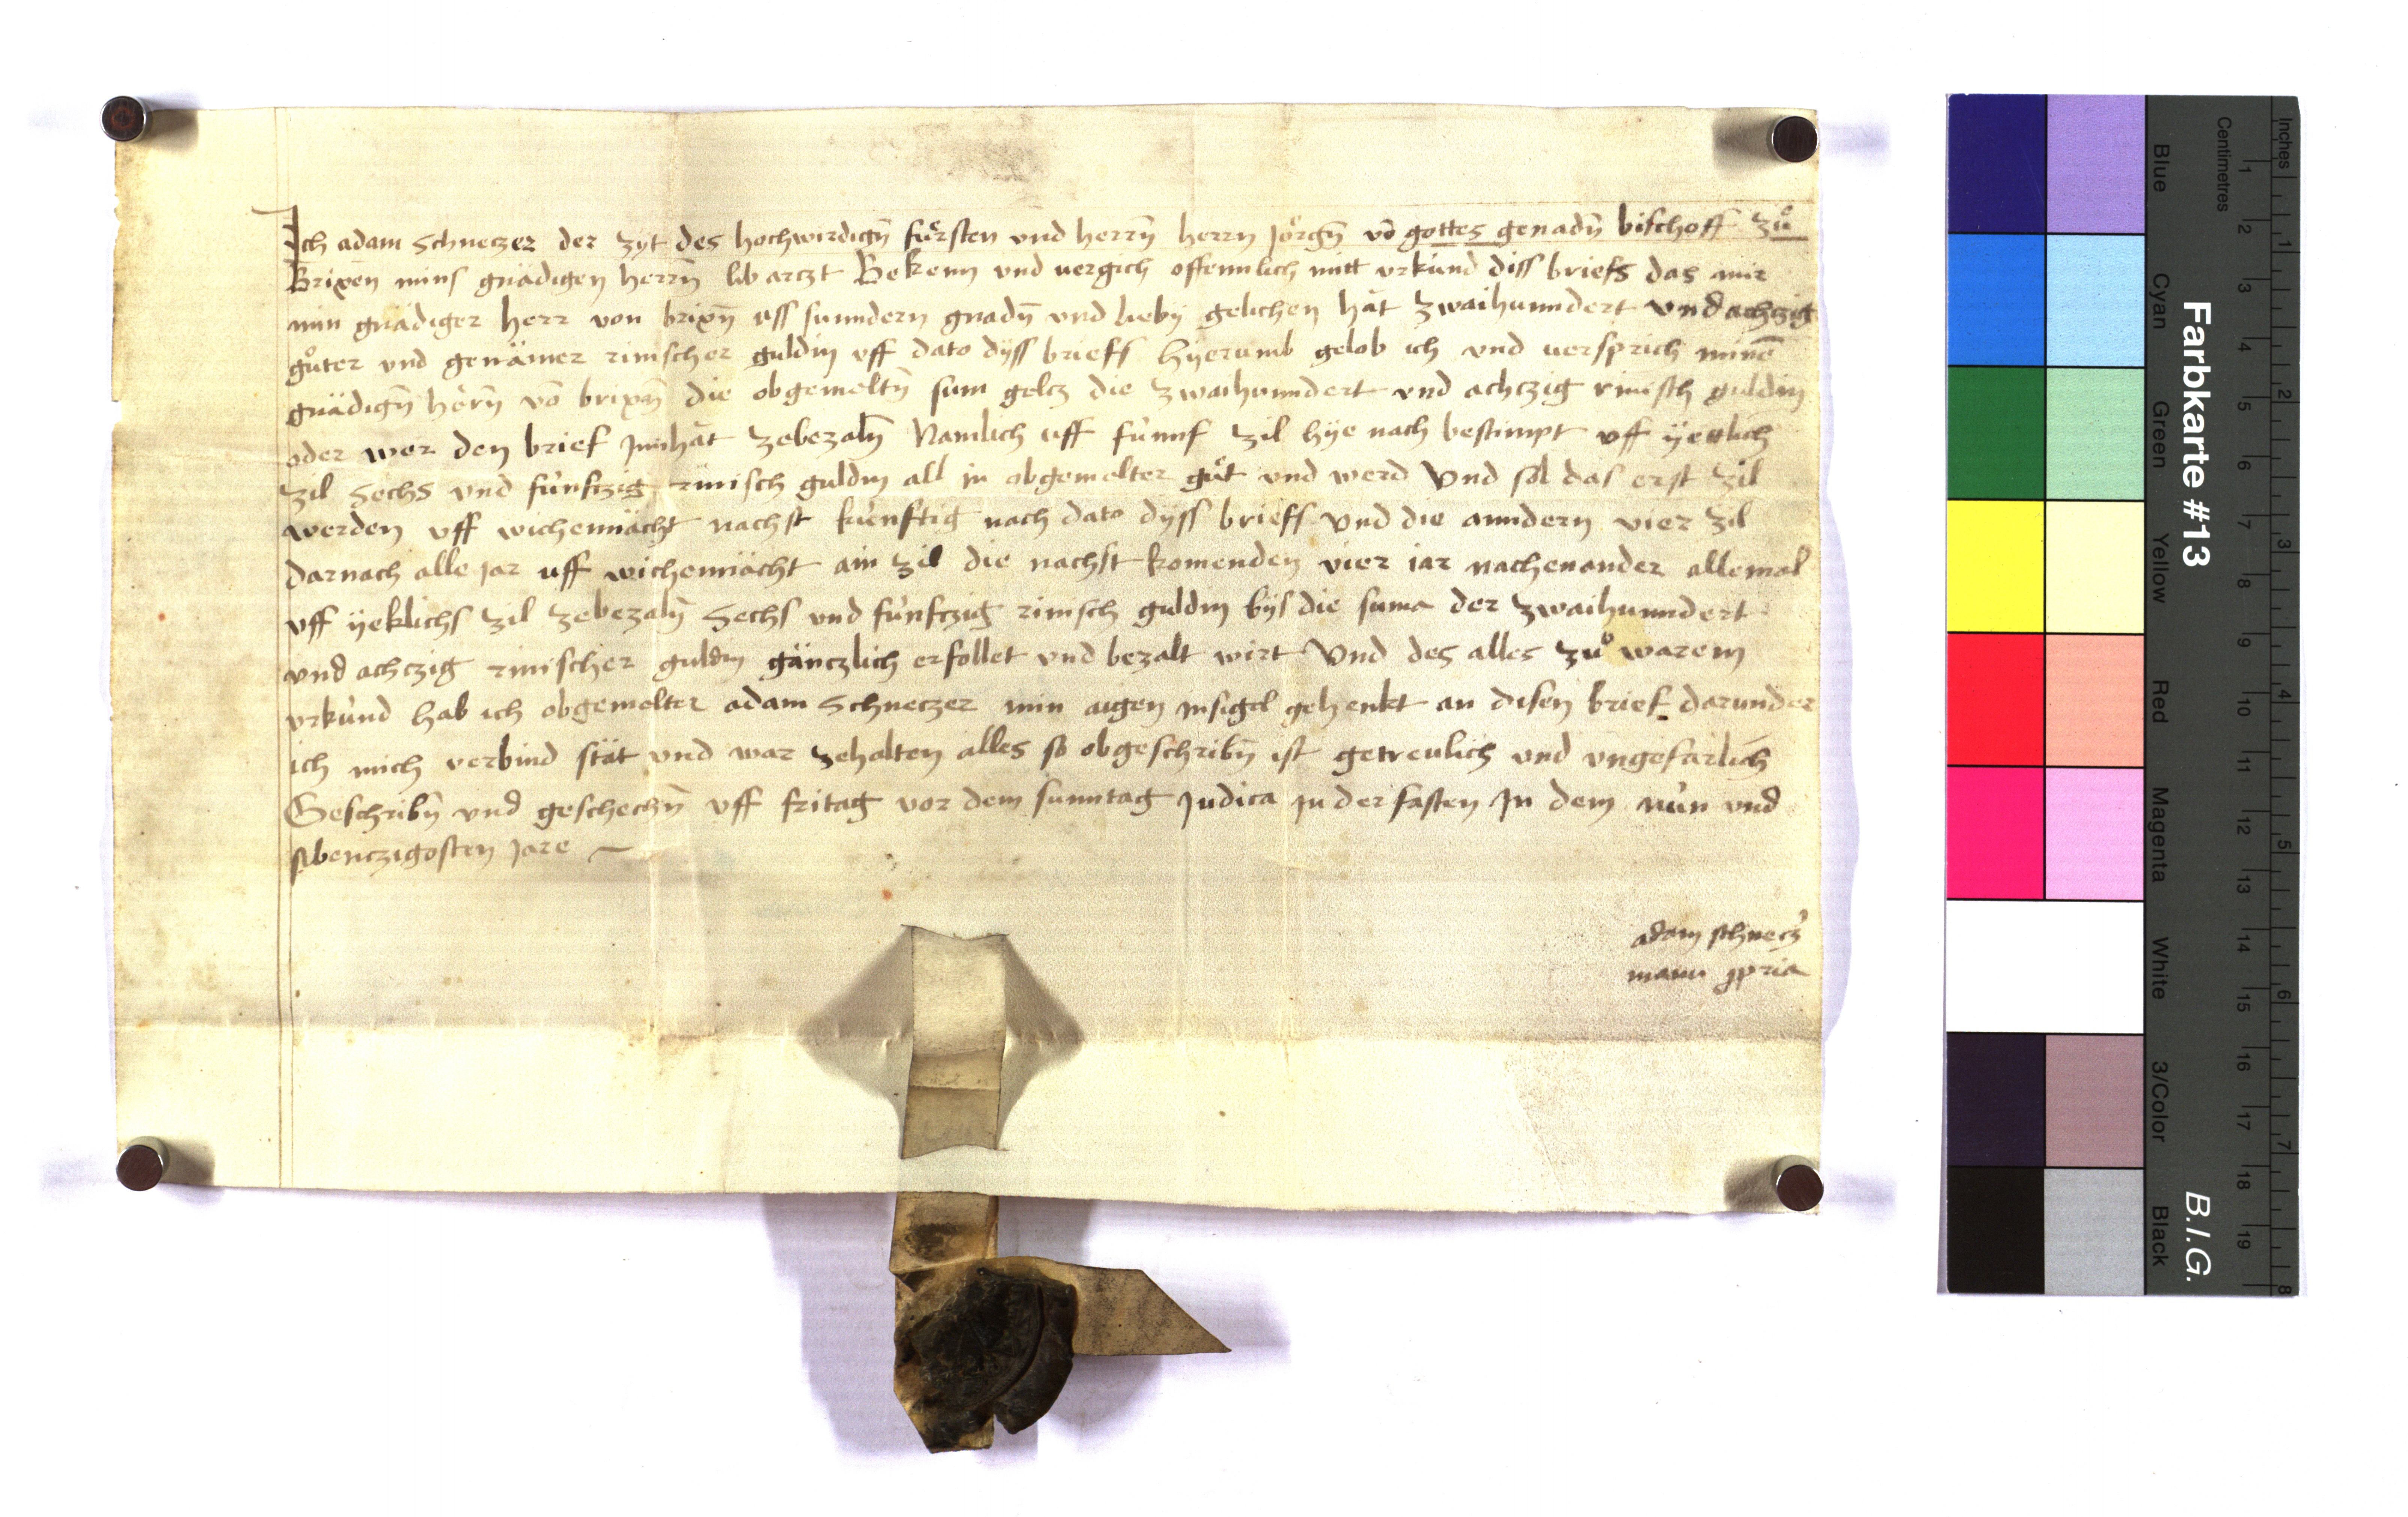 Ich adam Schneczer der zyt des hochwirdigñ fürsten vnd herrñ herrn Jörgñ vō gottes genadñ bischoff zů
Brixen mins gnädigen herrñ lib arczt Bekenn vnd uergich offennlich mitt vrkund diss briefs das mir
min gnädiger herr von brixñ uss sunndern gnadñ vnd lieby gelichen hät zwaihunndert vnd achczig
gůter vnd genämer rinischer guldin vff dato dyss briefs hyerumb gelob ich vnd uersprich minē
gnädigñ herñ vō brixñ die obgemeltñ sum gelcz die zwaihunndert vnd achczig rinisch guldin
oder wer den brief Innhät zebezalñ Namlich uff fünnf zil hye nach bestimpt vff yettlich
zil Sechs vnd fünfczig rinisch guldin all in obgemelter gůt vnd werd Vnd sol das erst zil
werden vff wichennächt nachst künftig nach dato dyss briefs Vnd die anndern vier zil
darnach alle jar uff wichennächt ain zil die nachst komenden vier iar nachenander allemal
vff yeklichs zil zebezalñ Sechs vnd fünfczig rinisch guldin bys die suma der zwaihunndert
vnd achczig rinischer guldin gänczlich erfollet vnd bezalt wirt Vnd des alles zů warem
vrkund hab ich obgemelter adam Schneczer min aigen insigel gehenkt an disen brief darunder
ich mich verbind stät vnd war zehalten alles so obgeschribñ ist getreulich vnd vngefarlich
Geschribñ vnd geschechñ vff fritag vor dem sunntag Judica In der fasten In dem nün vnd
sibenczigosten Jare
adam schnecz'
manu ppria
Farbkarte #13
B.I.G.
Blue
Cyan
Green
Yellow
Red
Magenta
White
3/Color
Black
Centimetres
1 2 3 4 5 6 7 8 9 10 11 12 13 14 15 16 17 18 19
Inches
1 2 3 4 5 6 7 8